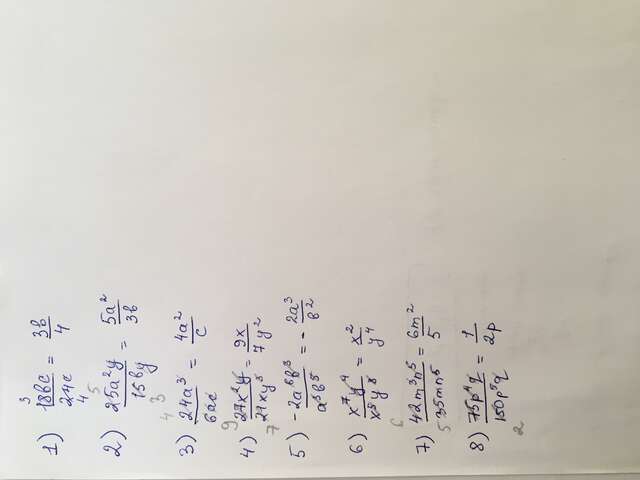 1) 18bc/24c = 3b/4
2) 25a²y/15by = 5a²/3b
3) 24a³/6ac = 4a²/c
4) 27x²y/21xy³ = 9x/7y²
5) -2a⁶b³/a³b⁵ = - 2a³/b²
6) x⁷y⁴/x⁵y⁸ = x²/y⁴
7) 42m³n⁵/35mn⁵ = 6m²/5
8) 75p⁴q/150p⁵q = 1/2p